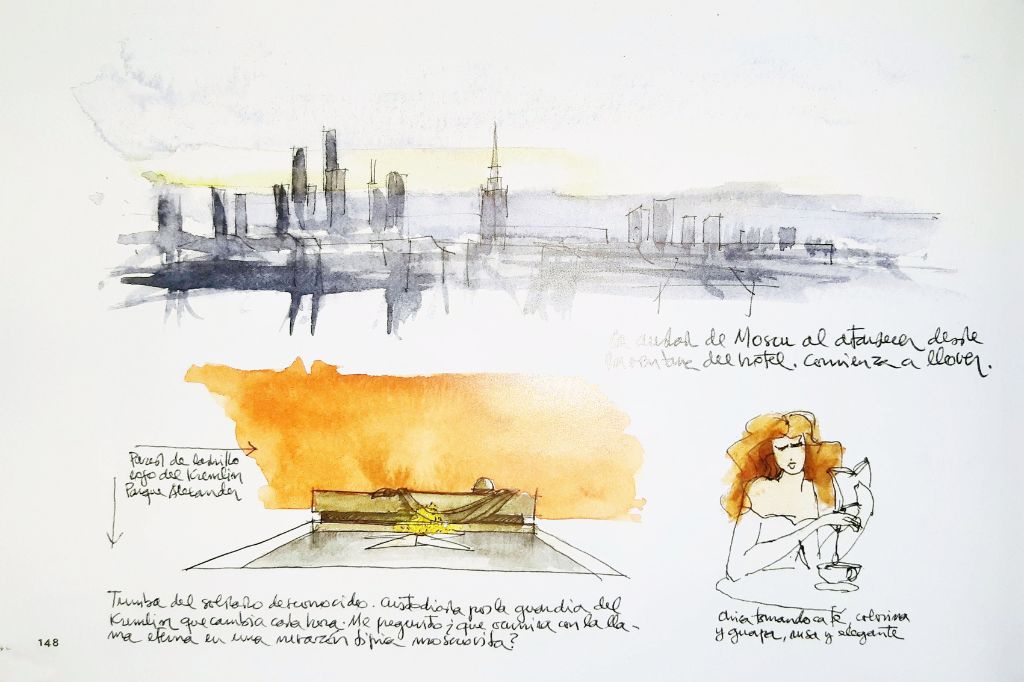 La ciudad de Moscu al atardecer desde
la ventana del hotel. Comienza a llover.
Pared de ladrillo
rojo del Kremlin
Parque Alexander
Tumba del soldado desconocido. Custodiada por la guardia del
Kremlin que cambia cada hora. Me pregunto ¿que ocurrira con la lla-
ma eterna en una tipica moscovita?
Chica tomando café,
y guapa, rusa y elegante
148